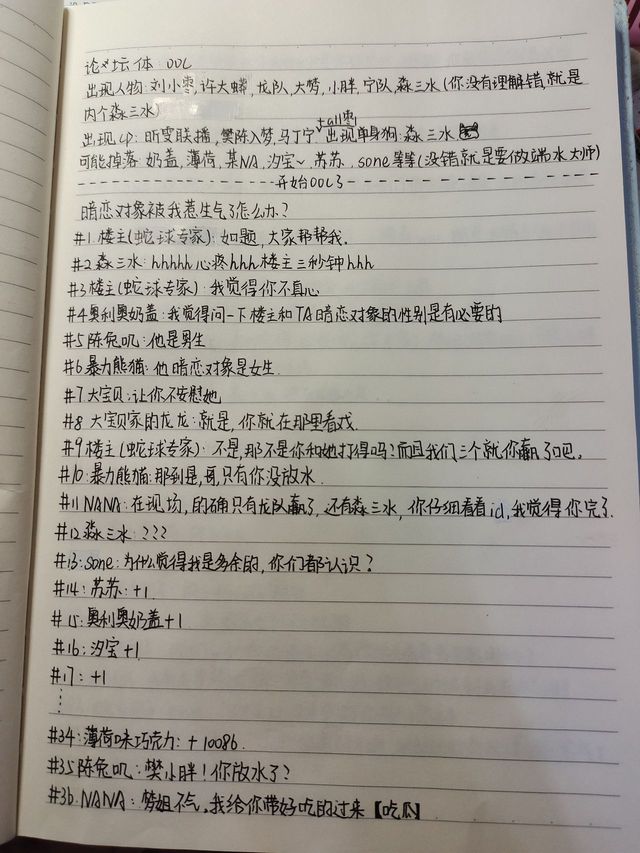 论坛体 OOC
出现人物:刘小枣,许大蟒,龙队,大梦,小胖,宁队,淼三水(你没有理解错,就是
内个淼三水)
出现cp:昕雯联播,樊陈入梦,马丁宁+all枣 出现单身狗:淼三水
可能掉落:奶盖,薄荷,某NA,汐宝~苏苏,sone等等(没错就是要做端水大师)
开始OOC了
暗恋对象被我惹生气了怎么办?
#1.楼主(蛇球专家):如题,大家帮帮我.
#2淼三水:hhhhh心疼hhh楼主三秒钟hhh
#3楼主(蛇球专家):我觉得你不真心
#4奥利奥奶盖:我觉得问一下楼主和TA暗恋对象的性别是有必要的
#5陈兔叽:他是男生
#6暴力熊猫:他暗恋对象是女生.
#7.大宝贝:让你不安慰她
#8大宝贝家的龙龙:就是,你就在那里看戏.
#9楼主(蛇球专家):不是,那不是你和她打得吗?而且我们三个就你赢了吧。
#10:暴力熊猫:那到是,哥,只有你没放水.
#11NANA:在现场,的确只有龙队赢了,还有淼三水,你仔细看看id,我觉得你完了.
#12淼三水:???
#13:sone:为什么觉得我是多余的,你们都认识?
#14:苏苏:+1.
#15:奥利奥奶盖+1
#16:汐宝+1
#17:+1
#34:薄荷味巧克力:+10086.
#35陈兔叽:樊小胖!你放水了?
#36NANA:梦姐不气,我给你带好吃的过来【吃瓜】